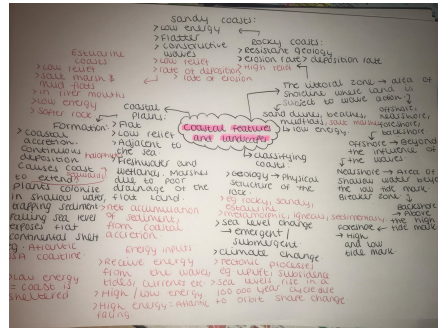 Sandy coasts:
> Low energy
> Flatter
> Constructive waves
> Low relief
> rate of deposition
> rate of erosion
Rocky coasts:
> Resistant geology
> erosion rate > deposition rate
> High relief
Estuarine coasts
> Low relief
> salt marsh & mud flats
> in river mouths
> low energy
> softer rock
The littoral zone → area of
shoreline where land is
subject to wave action
sand dunes, beaches,
mudflats, salt marshes
> low energy.
offshore,
nearshore,
foreshore
backshore
Offshore → Beyond
the influence
of the waves
Nearshore → area of
shallow water beyond
the low tide mark
Breaker zone
Backshore
→ Above
the high
tide mark
Foreshore
→ High
and low
tide mark
Coastal features
and landscapes
Coastal Plains:
> Flat
> Low relief
> Adjacent to
the sea
> Freshwater and
wetland, marshes
due to poor
drainage of the
flat land.
> net accumulation
of sediment
from coastal
accretion.
Formation:
> coastal
accretion.
Continuous
deposition
causes coast
to extend
plants colonise
in shallow water,
trapping sediment
falling sea level
exposes flat
continental shelf
eg: Atlantic
USA coastline
> Low energy
= coast is
sheltered
energy inputs
> Receive energy
from the waves,
tides, currents etc
> High / low energy.
> High energy = Atlantic
facing
classifying
coasts
> Geology → Physical
structure of the
rock
eg rocky, sandy,
estuarine
> metamorphic, igneous, sedimentary
> Sea level change
→ emergent /
submergent
> climate change
> tectonic processes
eg uplift, subsidence
> Sea level rise in a
100,000 year cycle due
to orbit shape change